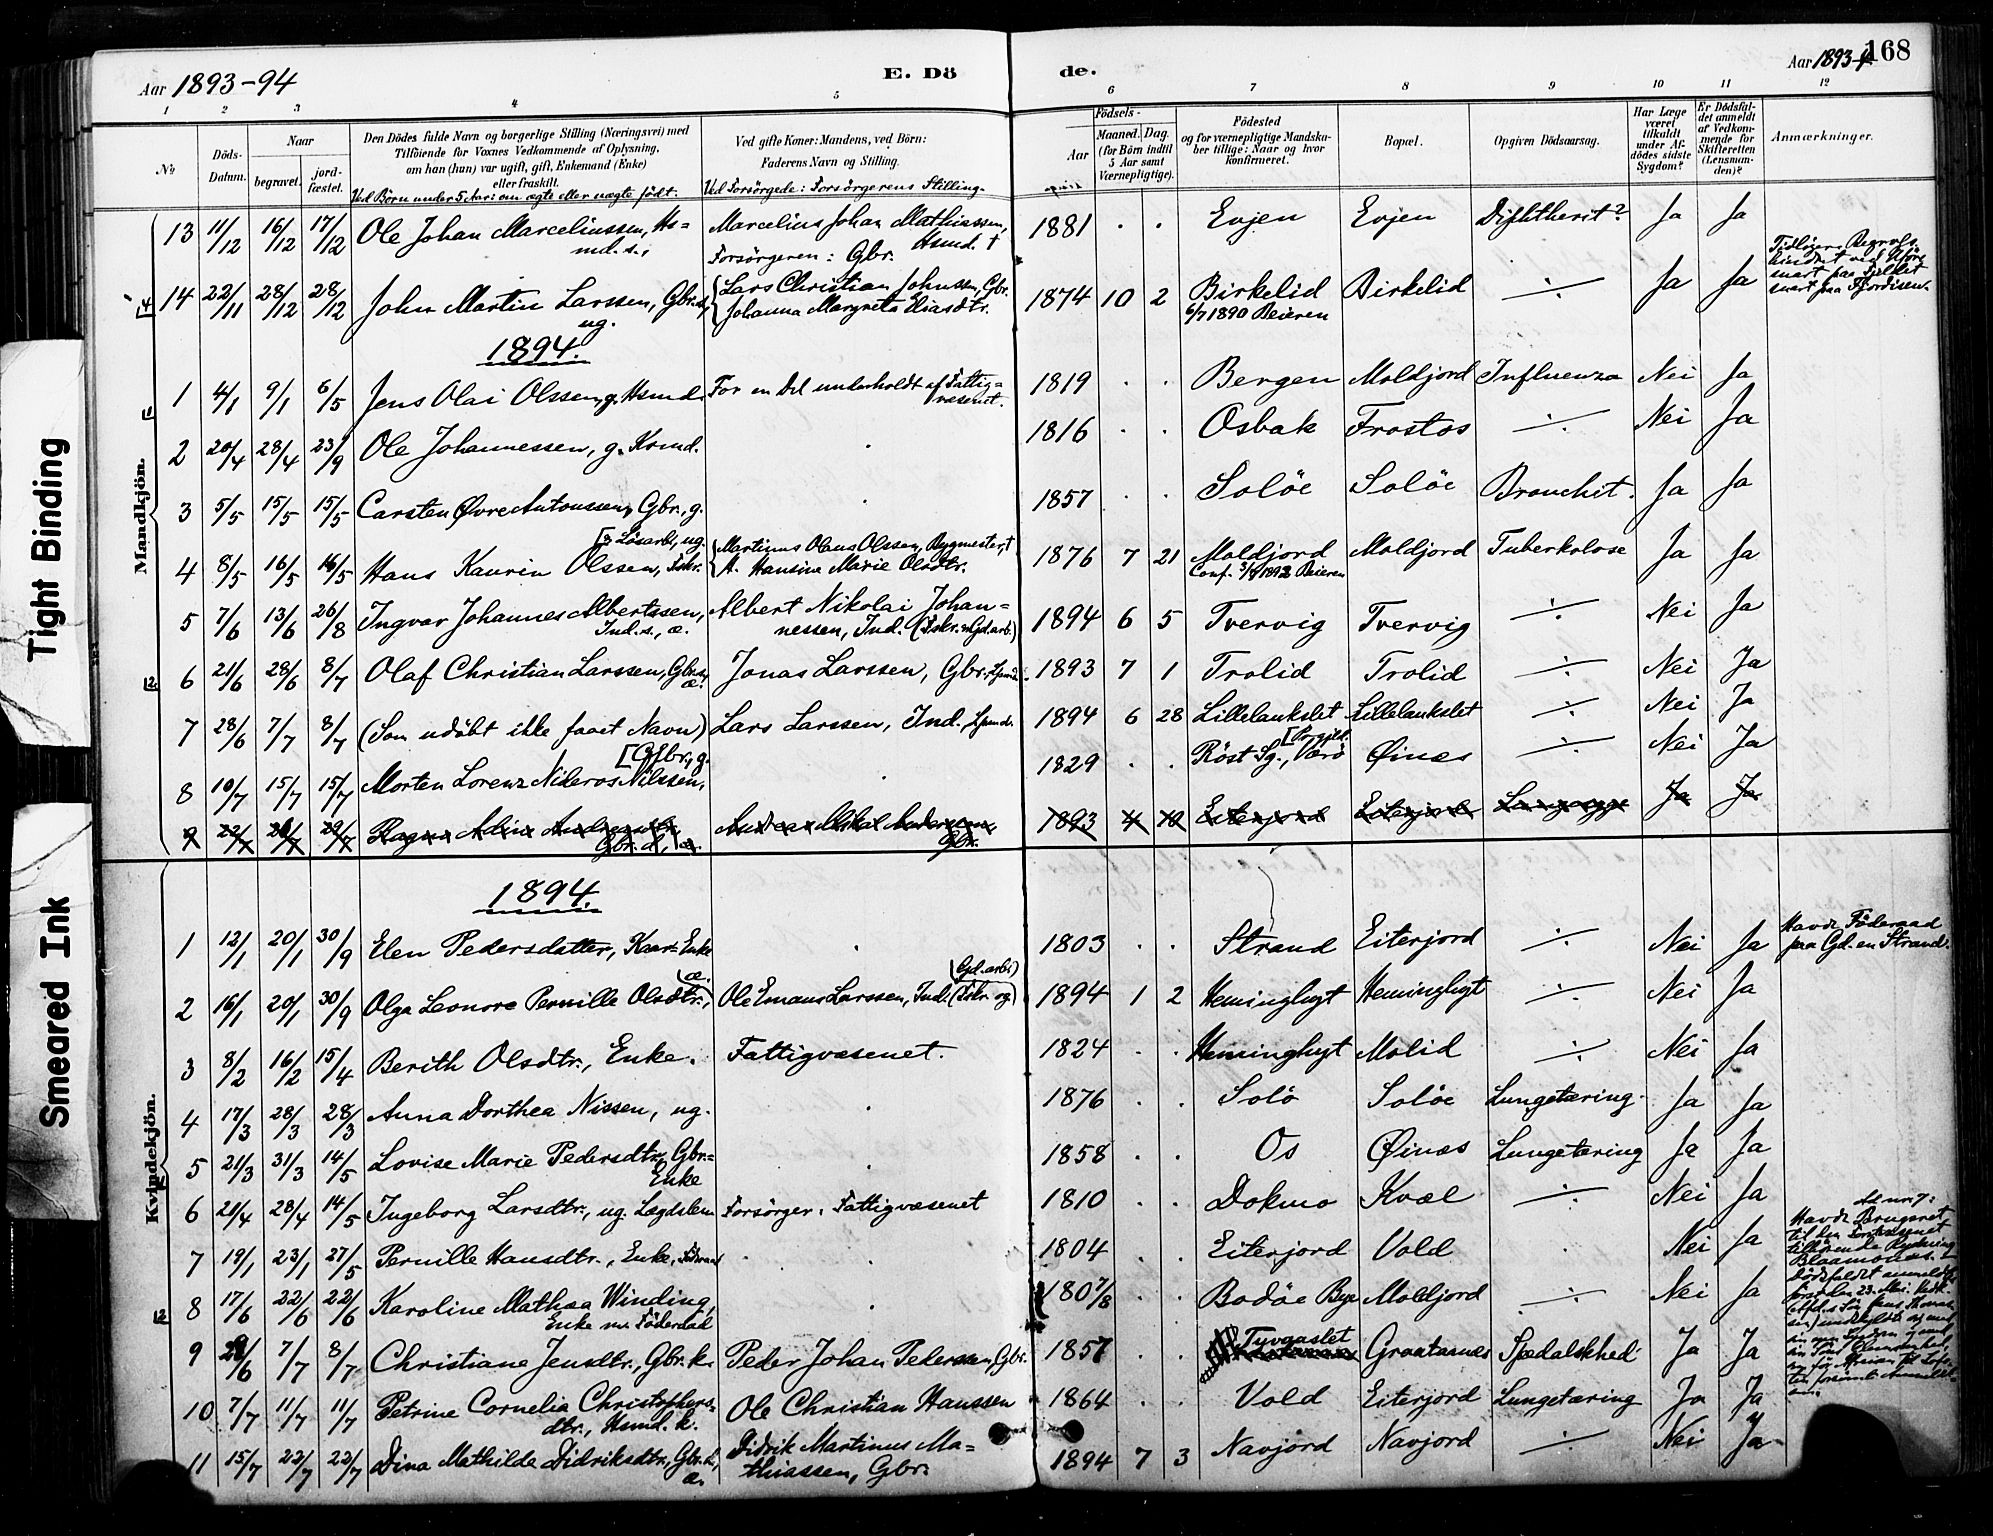 Aar 1893-94
E. Dö
de.
Aar 1893-4
168
1 2 3 4 5 6 7 8 9 10 11 12
№
Döds-
Datum.
Naar
begravet.
jord-
fæstet.
Den Dödes fulde Navn og borgerlige Stilling (Næringsvei) med
Tilföiende for Voxnes Vedkommende af Oplysning,
om han (hun) var ugift, gift, Enkemand (Enke)
eller fraskilt.
Ved Börn under 5 Aar: om ægte eller uægte födt.
Ved gifte Koner: Mandens, ved Börn:
Faderens Navn og Stilling.
Ved Forsörgede: Forsörgerens Stilling.
Födsels-
Aar
Maaned. Dag.
(for Börn indtil
5 Aar samt
Værnepligtige).
Födested
og for værnepligtige Mandska-
ber tillige: Naar og hvor
konfirmeret.
Bopæl.
Opgiven Dödsaarsag.
Har Læge
været
tilkaldt
under Af-
dödes sidste
Sygdom?
Er Dödsfal-
det anmeldt
af Vedkom-
mende for
Skifteretten
(Lensman-
den)?
Anmærkninger.
Mandkjön.
13 11/12 16/12 17/12 Ole Johan Marceliussen, Hs=
md. s.,
Marcelius Johan Mathiassen,
Hsmd. †
Forsörgeren: Gbr.
1881 . . Evjen Evjen Difhtherit? Ja Ja
14 22/11 28/12 28/12 John Martin Larssen, Gbr. s.,
ug.
Lars Christian Johnssen, Gbr.
Johanna Margreta Eliasdtr.
1874 10 2 Birkelid Birkelid ÷ Ja Ja
6/7 1890 Beieren
Tidligere Begravelse
hindret ved Uföre
snart paa Fjeldet
snart paa Fjordisen.
1894.
1 4/1 9/1 6/5 Jens Olai Olssen, g. Hsmd. For en Del underholdt af Fattig=
væsenet.
1819 . . Bergen Moldjord Influenza Nei Ja
2 20/4 28/4 23/9 Ole Johannessen, g. Hsmd. . 1816 . . Osbak Frostos ÷ Nei Ja
3 5/5 15/5 15/5 Carsten Øvre Antonssen, Gbr., g. . 1857 . . Solöe Solöe Bronchit. Ja Ja
4 8/5 16/5 16/5 Hans Kaurin Olssen, Fskr.
[& Lösarb., ug.
Martinus Olaus Olssen, Bygmester, †
H. Hansine Marie Olsdtr.
1876 7 21 Moldjord Moldjord Tuberkolose Ja Ja
Conf. 3/7 1892 Beieren
5 7/6 13/6 26/8 Ingvar Johannes Albertssen,
Ind. s., æ.
Albert Nikolai Johan=
nessen, Ind. (Fskr. & Gd.arb.)
1894 6 5 Tvervig Tvervig ÷ Nei Ja
6 21/6 28/6 8/7 Olaf Christian Larssen, Gbr. s.,
æ.
Jonas Larssen, Gbr.
1893 7 1 Trolid Trolid ÷ Nei Ja
7 28/6 7/7 8/7 (Som udöbt ikke faaet Navn) Lars Larssen, Ind.
1894 6 28 Lillelankslet Lillelankslet ÷ Nei Ja
8 10/7 15/7 15/7 Morten Lorenz Nideros Nilssen,
[Gbr., g.
.
1829 . . Röst Sg., Værö
Øinæs ÷ Nei Ja
9 22/7 29/7 29/7 Ragna Adina
Gbr. d., æ.
Andreas
Gbr.
1893 4 10 Eiterjord Eiterjord Ja Ja
Kvindekjön.
1894.
1 12/1 20/1 30/9 Elen Pedersdatter, Kaar Enke . 1803 . . Strand Eiterjord ÷ Nei Ja
Havde Föderaad
paa Gd. en Strand.
2 16/1 20/1 30/9 Olga Leonore Pernille Olsdtr.,
æ.
Ole Emaus Larssen, Ind. (Fskr. og
Gd.arb.)
1894 1 2 Heminghyt Heminghyt ÷ Nei Ja
3 8/2 16/2 15/4 Berith Olsdtr., Enke. Fattigvæsenet. 1824 . . Heminghyt Molid ÷ Nei Ja
4 17/3 28/3 28/3 Anna Dorthea Nissen, ug. . 1876 . . Solö Solöe Lungetæring. Ja Ja
5 21/3 31/3 14/5 Lovise Marie Pedersdtr., Gbr.=
Enke
. 1858 . . Os Øinæs Lungetæring Ja Ja
6 21/4 28/4 14/5 Ingeborg Larsdtr., ug. Lægdslem Forsörger: Fattigvæsenet 1810 . . Dokmo Kvæl ÷ Nei Ja
7 19/1 23/1 27/5 Pernille Hansdtr., Enke, . 1804 . . Eiterjord Vold . Nei Ja
Ad nr. 7:
Havde Brugsret
til den
tilhörende Rydning
8 17/6 22/6 22/6 Karoline Mathea Winding,
Enke m. Föderaad
. 1807/8 . . Bodöe By Moldjord ÷ Nei Ja
Dödsfaldet anmeldt
9 28/6 7/7 8/7 Christiane Jensdtr., Gbr. k. Peder Johan Pederssen, Gbr. 1857 . . Tuvgaslet
Graatænæs Spedalskhed Ja Ja
10 7/7 11/7 11/7 Petrine Cornelia Christophers=
dtr., Hsmd. k.
Ole Christian Hanssen 1864 . . Vold Eiterjord Lungetæring Ja Ja
11 15/7 22/7 22/7 Dina Mathilde Didriksdtr., Gbr. d.,
æ.
Didrik Martinus Ma=
thiassen, Gbr.
1894 7 3 Navjord Navjord ÷ Nei Ja
Tight Binding
Smeared Ink